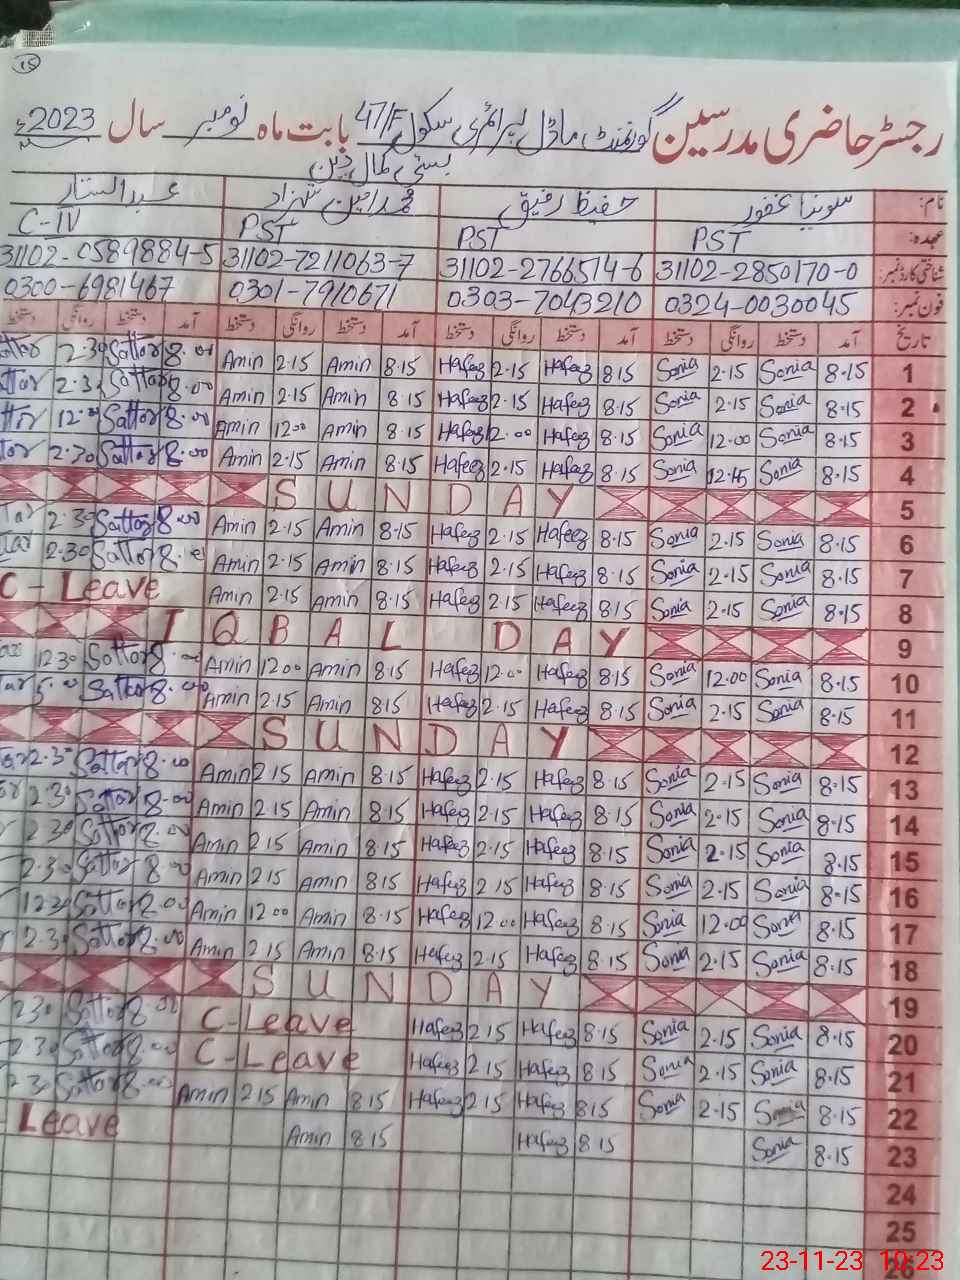 15
رجسٹر حاضری مدرسین گورنمنٹ ماڈل پرائمری سکول 47/F بابت ماہ نومبر سال 2023ء
بستی کمال دین
نام: سونیا غفور حفیظ رفیق محمد امین شہزاد عبدالستار
عہدہ: PST PST PST C-IV
شناختی کارڈ نمبر: 31102-2850170-0 31102-2766514-6 31102-7211063-7 31102-0589884-5
فون نمبر: 0324-0030045 0303-7043210 0301-7910671 0300-6981467
تاریخ آمد دستخط روانگی دستخط آمد دستخط روانگی دستخط آمد دستخط روانگی دستخط آمد دستخط روانگی دستخط
1 8.15 Sonia 2.15 Sonia 8.15 Hafeez 2.15 Hafeez 8.15 Amin 2.15 Amin 8.00 Sattar 2.30
2 8.15 Sonia 2.15 Sonia 8.15 Hafeez 2.15 Hafeez 8.15 Amin 2.15 Amin 8.00 Sattar 2.30
3 8.15 Sonia 12.00 Sonia 8.15 Hafeez 12.00 Hafeez 8.15 Amin 12.00 Amin 8.00 Sattar
4 8.15 Sonia 12.15 Sonia 8.15 Hafeez 2.15 Hafeez 8.15 Amin 2.15 Amin 8.00 Sattar 2.30
5 SUNDAY
6 8.15 Sonia 2.15 Sonia 8.15 Hafeez 2.15 Hafeez 8.15 Amin 2.15 Amin 8.00 Sattar 2.30
7 8.15 Sonia 2.15 Sonia 8.15 Hafeez 2.15 Hafeez 8.15 Amin 2.15 Amin Sattar 2.30
8 8.15 Sonia 2.15 Sonia 8.15 Hafeez 2.15 Hafeez 8.15 Amin 2.15 Amin C-Leave
9 IQBAL DAY
10 8.15 Sonia 12.00 Sonia 8.15 Hafeez 12.00 Hafeez 8.15 Amin 12.00 Amin 8.00 Sattar 12.30
11 8.15 Sonia 2.15 Sonia 8.15 Hafeez 2.15 Hafeez 8.15 Amin 2.15 Amin 8.00 Sattar
12 SUNDAY
13 8.15 Sonia 2.15 Sonia 8.15 Hafeez 2.15 Hafeez 8.15 Amin 2.15 Amin 8.00 Sattar 2.30
14 8.15 Sonia 2.15 Sonia 8.15 Hafeez 2.15 Hafeez 8.15 Amin 2.15 Amin 8.00 Sattar 2.30
15 8.15 Sonia 2.15 Sonia 8.15 Hafeez 2.15 Hafeez 8.15 Amin 2.15 Amin 8.00 Sattar 2.30
16 8.15 Sonia 2.15 Sonia 8.15 Hafeez 2.15 Hafeez 8.15 Amin 2.15 Amin 8.00 Sattar 2.30
17 8.15 Sonia 12.00 Sonia 8.15 Hafeez 12.00 Hafeez 8.15 Amin 12.00 Amin 8.00 Sattar 12.30
18 8.15 Sonia 2.15 Sonia 8.15 Hafeez 2.15 Hafeez 8.15 Amin 2.15 Amin 8.00 Sattar 2.30
19 SUNDAY
20 8.15 Sonia 2.15 Sonia 8.15 Hafeez 2.15 Hafeez C-Leave 8.00 Sattar 2.30
21 8.15 Sonia 2.15 Sonia 8.15 Hafeez 2.15 Hafeez C-Leave 8.00 Sattar 2.30
22 8.15 Sonia 2.15 Sonia 8.15 Hafeez 2.15 Hafeez 8.15 Amin 2.15 Amin 8.00 Sattar 2.30
23 8.15 Sonia 8.15 Hafeez 8.15 Amin Leave
24
25
26
23-11-23 10:23